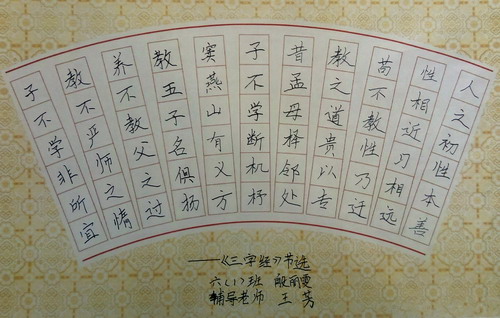 人之初性本善
性相近习相远
苟不教性乃迁
教之道贵以专
昔孟母择邻处
子不学断机杼
窦燕山有义方
教五子名俱扬
养不教父之过
教不严师之惰
子不学非所宜
——《三字经》节选
六(1)班 殷雯
辅导老师 王芳